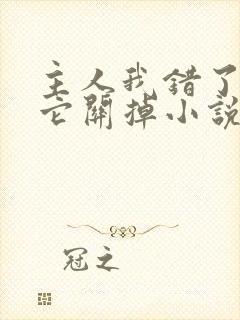 主人我错了
它關掉小說
冠之